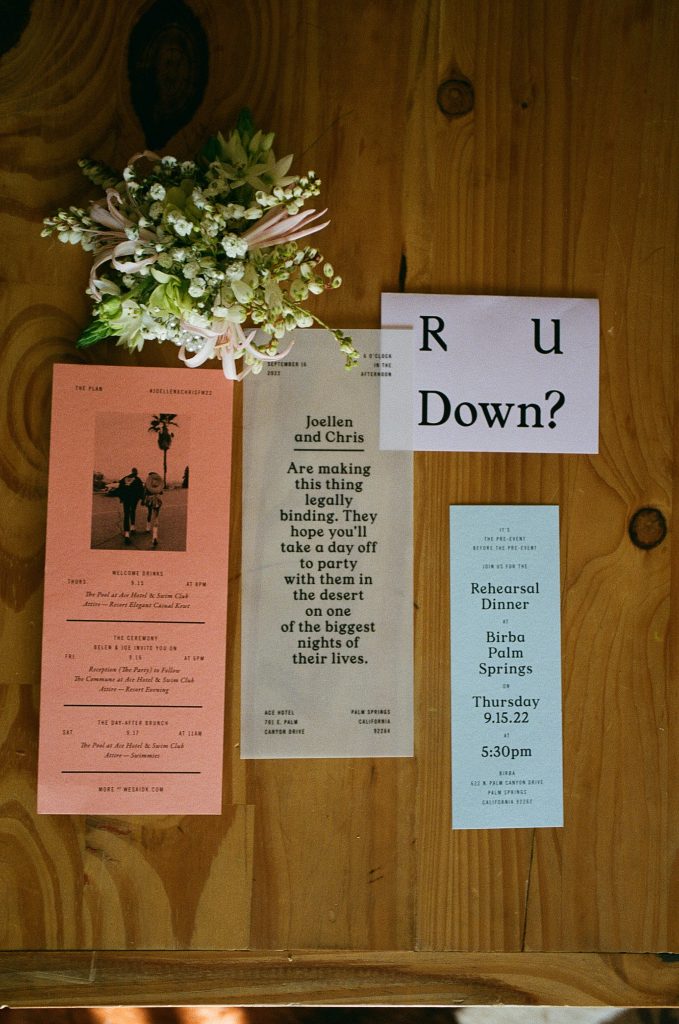 THE PLAN
#JOELLEN&CHRISFW22
WELCOME DRINKS
THURS 9.15 AT 8PM
The Pool at Ace Hotel & Swim Club
Attire — Resort Elegant Casual Kewt
THE CEREMONY
BELEN & JOE INVITE YOU ON
FRI 9.16 AT 6PM
Reception (The Party) to Follow
The Commune at Ace Hotel & Swim Club
Attire — Resort Evening
THE DAY-AFTER BRUNCH
SAT. 9.17 AT 11AM
The Pool at Ace Hotel & Swim Club
Attire — Swimmies
MORE AT WESAIDK.COM
SEPTEMBER 16
2022
6 O'CLOCK
IN THE
AFTERNOON
Joellen
and Chris
Are making
this thing
legally
binding. They
hope you'll
take a day off
to party
with them in
the desert
on one
of the biggest
nights of
their lives.
ACE HOTEL
701 E. PALM
CANYON DRIVE
PALM SPRINGS
CALIFORNIA
92264
R U
Down?
IT'S
THE PRE-EVENT
BEFORE THE PRE-EVENT
JOIN US FOR THE
Rehearsal
Dinner
AT
Birba
Palm
Springs
ON
Thursday
9.15.22
AT
5:30pm
BIRBA
622 N. PALM CANYON DRIVE
PALM SPRINGS
CALIFORNIA 92262